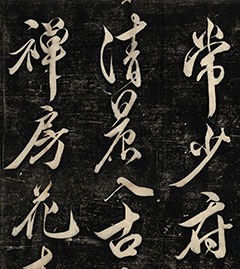 常少府
清晨入古
禅房花